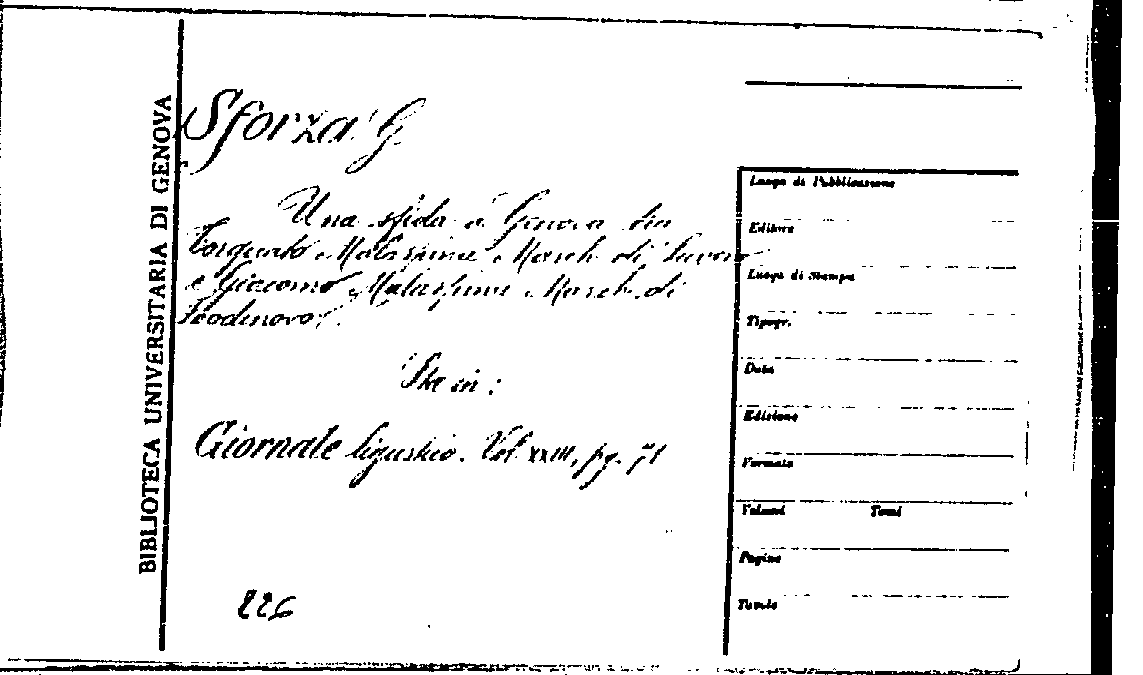 BIBLIOTECA UNIVERSITARIA DI GENOVA
Sforza G.
Una sfida a Genova tra
Torquato Malaspina March. di Suvero
e Giacomo Malaspina March. di
Podenovo.
Sta in:
Giornale ligustico. Vol. XXIII, pg. 71
226
Luogo di Pubblicazione
Editore
Luogo di Stampa
Tipogr.
Data
Edizione
Formato
Volumi Tomi
Pagine
Tavole